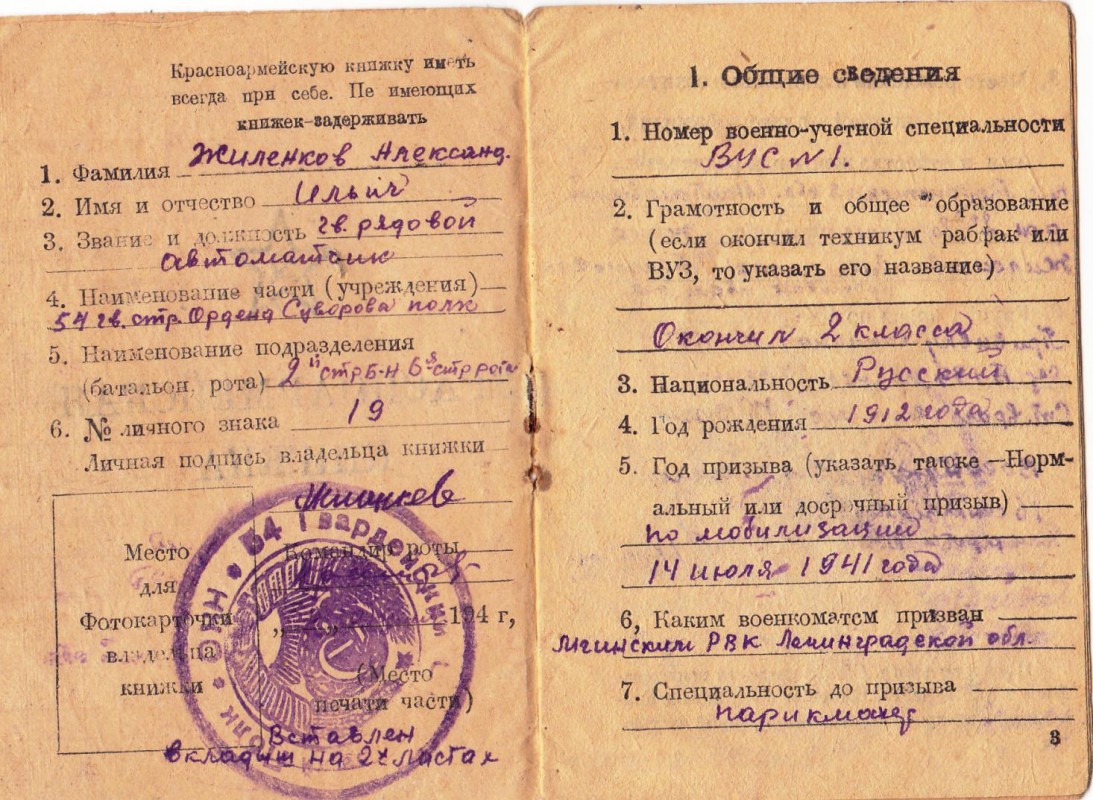 Красноармейскую книжку иметь
всегда при себе. Не имеющих
книжек-задерживать
1. Фамилия Жиленков Александ.
2. Имя и отчество Ильич
3. Звание и должность гв. рядовой
автоматчик
4. Наименование части (учреждения)
54 гв. стр. Ордена Суворова полк
5. Наименование подразделения
(батальон, рота) 2й стр б-н 6я стр рота
6. № личного знака 19
Личная подпись владельца книжки
Место
для
Фотокарточки
владельца
книжки
54 Гвардейский
Командир роты
194 г,
(Место
печати части)
Вставлен
вкладыш на 2х листах
1. Общие сведения
1. Номер военно-учетной специальности
ВУС №1.
2. Грамотность и общее образование
(если окончил техникум рабфак или
ВУЗ, то указать его название)
Окончил 2 класса
3. Национальность Русский
4. Год рождения 1912 года
5. Год призыва (указать также—Норм-
альный или досрочный призыв)
по мобилизации
14 июля 1941 года
6, Каким военкоматом призван
Мгинским РВК Ленинградской обл.
7. Специальность до призыва
парикмахер
3